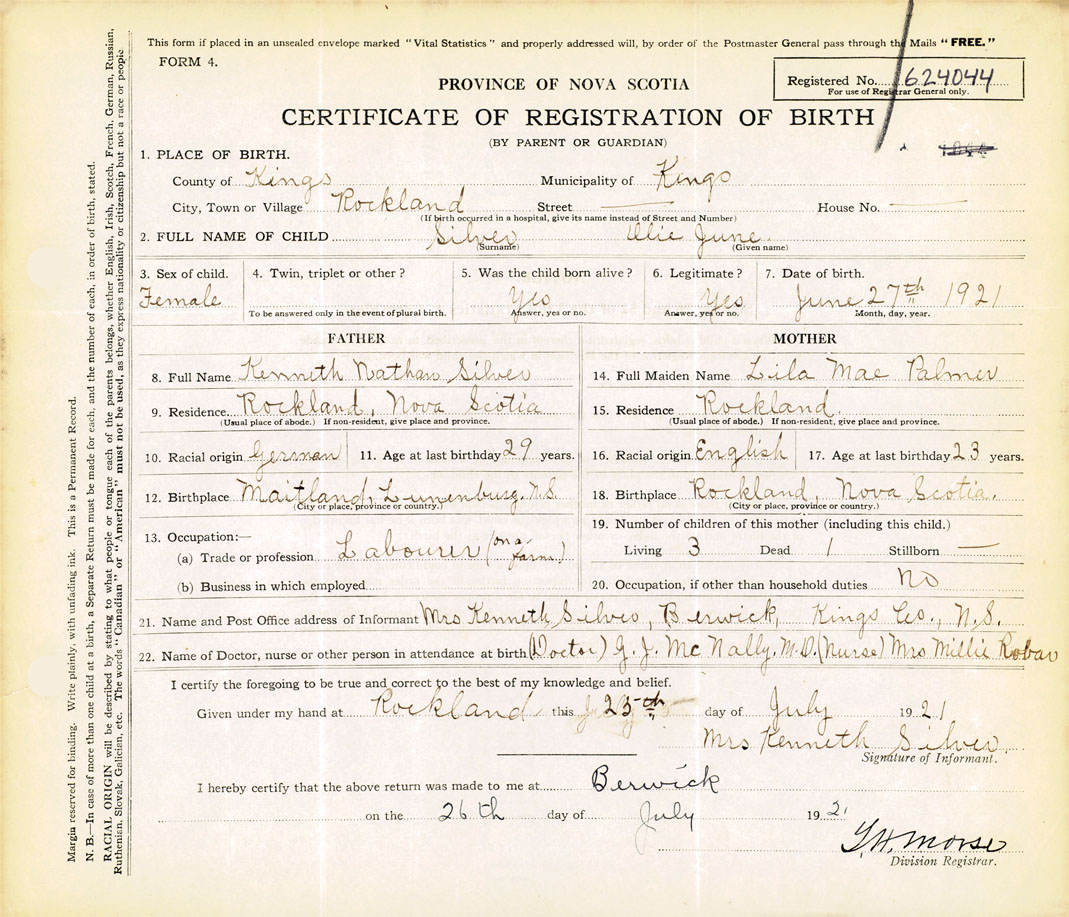 This form if placed in an unsealed envelope marked "Vital Statistics" and properly addressed will, by order of the Postmaster General pass through the Mails "FREE."
FORM 4.
Registered No. 624044
For use of Registrar General only.
PROVINCE OF NOVA SCOTIA
CERTIFICATE OF REGISTRATION OF BIRTH
(BY PARENT OR GUARDIAN)
1. PLACE OF BIRTH.
County of Kings Municipality of Kings
City, Town or Village Rockland Street House No.
(If birth occurred in a hospital, give its name instead of Street and Number)
2. FULL NAME OF CHILD Silver Ilie June
(Surname) (Given name)
3. Sex of child. 4. Twin, triplet or other? 5. Was the child born alive? 6. Legitimate? 7. Date of birth.
Female Yes Yes June 27th 1921
To be answered only in the event of plural birth. Answer, yes or no. Answer, yes or no. Month, day, year.
FATHER MOTHER
8. Full Name Kenneth Nathan Silver 14. Full Maiden Name Lila Mae Palmer
9. Residence. Rockland, Nova Scotia 15. Residence Rockland.
(Usual place of abode.) If non-resident, give place and province. (Usual place of abode.) If non-resident, give place and province.
10. Racial origin German 11. Age at last birthday 29 years. 16. Racial origin English 17. Age at last birthday 23 years.
12. Birthplace Maitland, Lunenburg. N.S. 18. Birthplace Rockland, Nova Scotia.
(City or place, province or country.) (City or place, province or country.)
13. Occupation:— 19. Number of children of this mother (including this child.)
(a) Trade or profession Labourer (on a farm.) Living 3 Dead 1 Stillborn —
(b) Business in which employed 20. Occupation, if other than household duties No
21. Name and Post Office address of Informant Mrs Kenneth Silver, Berwick, Kings Co., N.S.
22. Name of Doctor, nurse or other person in attendance at birth (Doctor) G. J. McNally. M.D. (Nurse) Mrs Millie Robar
I certify the foregoing to be true and correct to the best of my knowledge and belief.
Given under my hand at Rockland this 25th day of July 1921
Mrs Kenneth Silver.
Signature of Informant.
I hereby certify that the above return was made to me at Berwick
on the 26th day of July 192
Morse
Division Registrar.
Margin reserved for binding. Write plainly, with unfading ink. This is a Permanent Record.
N. B.—In case of more than one child at a birth, a Separate Return must be made for each, and the number of each, in order of birth, stated.
RACIAL ORIGIN will be described by stating to what people or tongue each of the parents belongs, whether English, Irish, Scotch, French, German, Russian,
Ruthenian, Slovak, Galician, etc. The words "Canadian" or "American" must not be used, as they express nationality or citizenship but not a race or people